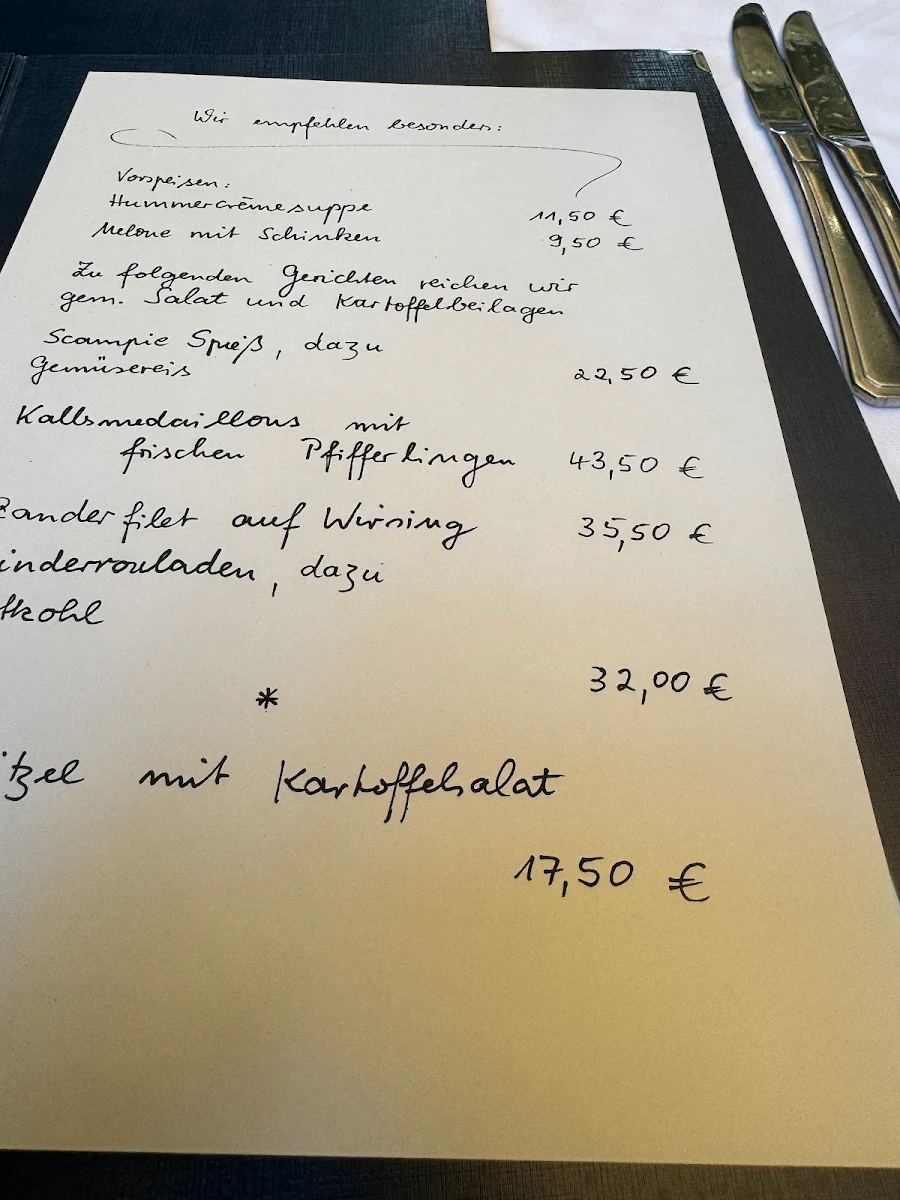 Wir empfehlen besonders:
Vorspeisen:
Hummercrèmesuppe 11,50 €
Melone mit Schinken 9,50 €
Zu folgenden Gerichten reichen wir
gem. Salat und Kartoffelbeilagen
Scampie Spieß, dazu
Gemüsereis 22,50 €
Kalbsmedaillons mit
frischen Pfifferlingen 43,50 €
Zanderfilet auf Wirsing 35,50 €
inderrouladen, dazu
tkohl
32,00 €
*
itzel mit Kartoffelsalat
17,50 €